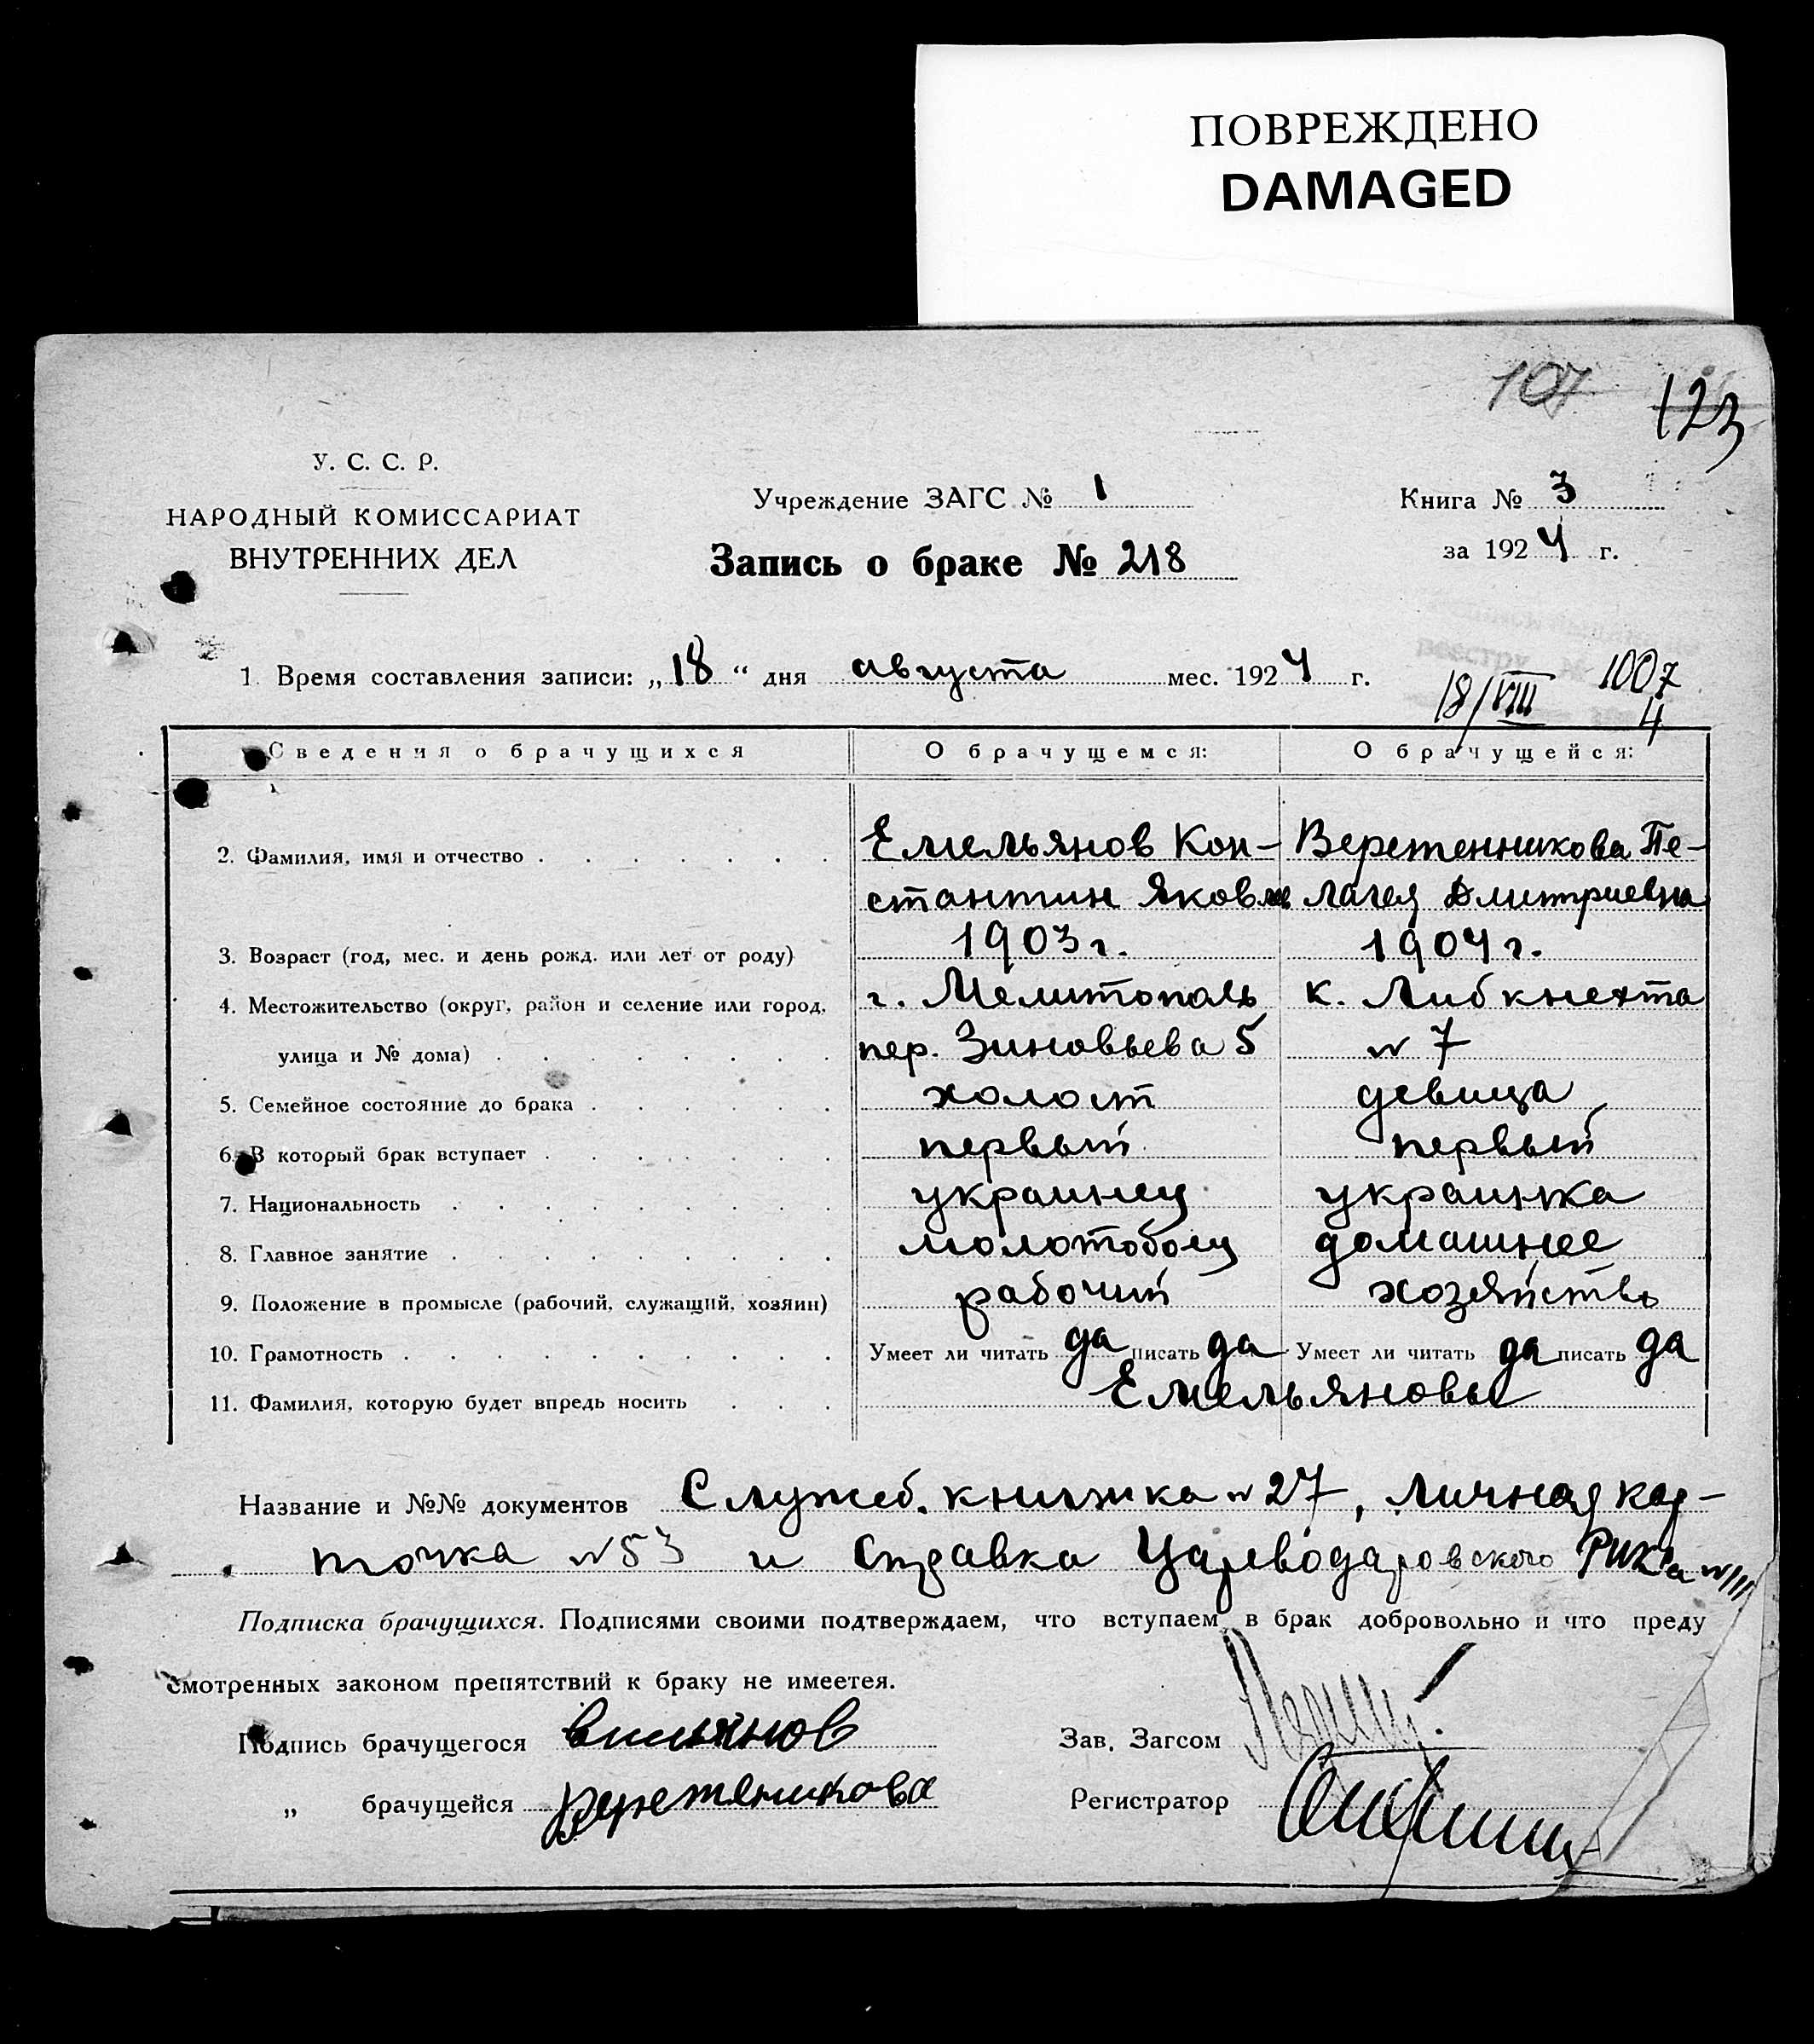 ПОВРЕЖДЕНО
DAMAGED
107 123
У. С. С. Р.
НАРОДНЫЙ КОМИССАРИАТ
ВНУТРЕННИХ ДЕЛ
Учреждение ЗАГС № 1
Запись о браке № 218
Книга № 3
за 1924 г.
1. Время составления записи: „18“ дня августа мес. 1924 г.
реестру 1007
18/VIII 4
Сведения о брачущихся О брачущемся: О брачущейся:
2. Фамилия, имя и отчество Емельянов Кон- Веретенникова Пе-
стантин Яковлев лагея Дмитриевна
3. Возраст (год, мес. и день рожд. или лет от роду) 1903 г. 1904 г.
4. Местожительство (округ, район и селение или город, г. Мелитополь К. Либкнехта
улица и № дома) пер. Зиновьева 5 № 7
5. Семейное состояние до брака холост девица
6. В который брак вступает первый первый
7. Национальность украинец украинка
8. Главное занятие молотобоец домашнее
9. Положение в промысле (рабочий, служащий, хозяин) рабочий хозяйство
10. Грамотность Умеет ли читать да писать да Умеет ли читать да писать да
11. Фамилия, которую будет впредь носить Емельяновы
Название и №№ документов Служеб. книжка № 27, личная кар-
точка № 53 и справка Цареводаровского РИК'а № 111
Подписка брачущихся. Подписями своими подтверждаем, что вступаем в брак добровольно и что преду
смотренных законом препятствий к браку не имеетея.
Подпись брачущегося Зав. Загсом
„ брачущейся Веретеникова Регистратор